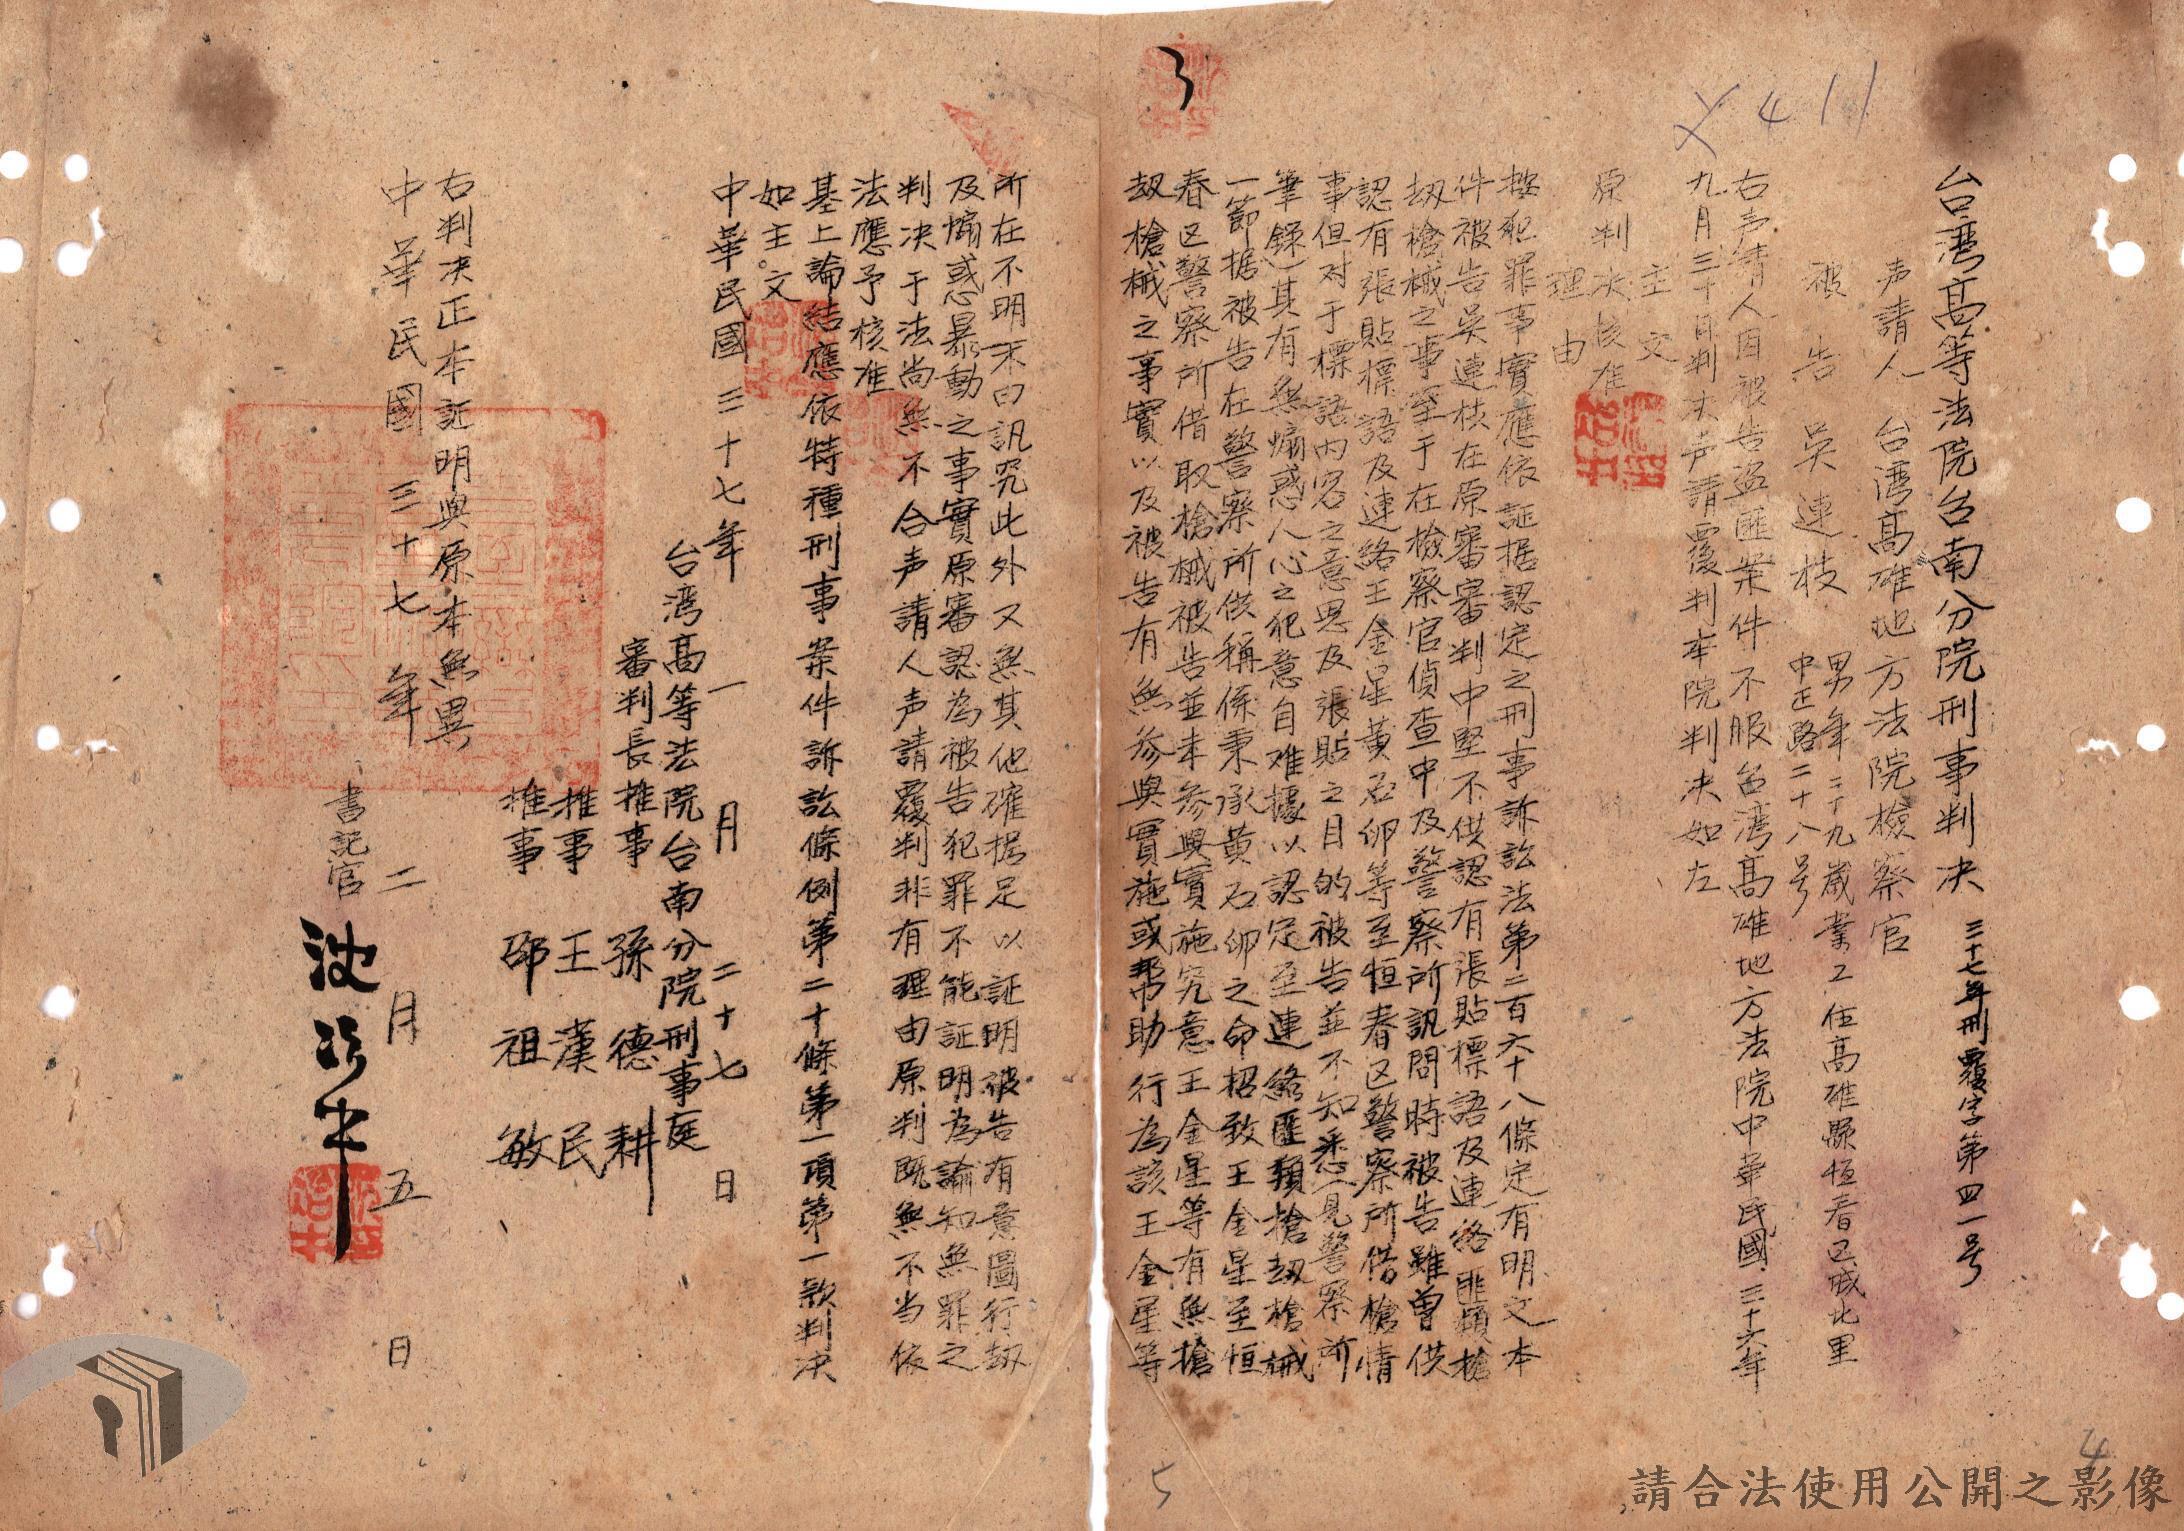 台湾高等法院台南分院刑事判决 三十七年刑覆字第四一号
声請人 台湾高雄地方法院檢察官
被告 吴連枝 男年二十九歲業工住高雄縣恒春区城北里
中正路二十八号
右声請人因被告盗匪案件不服台湾高雄地方法院中華民國三十六年
九月三十日判决声請覆判本院判决如左
主文
原判决核准
理由
按犯罪事實應依証据認定之刑事訴訟法第二百六十八條定有明文本
件被告吴連枝在原審審判中堅不供認有張貼標語及連絡匪類槍
刼槍械之事至于在檢察官偵查中及警察所訊問時被告雖曾供
認有張貼標語及連絡王金星黄石卵等至恒春区警察所借槍情
事但对于標語內容之意思及張貼之目的被告並不知悉(見警察所
筆錄)其有無煽惑人心之犯意自难據以認定至連絡匪類槍刼槍械
一節据被告在警察所供稱係秉承黄石卵之命招致王金星至恒
春区警察所借取槍械被告並未参與實施究竟王金星等有無搶
刼槍械之事實以及被告有無参與實施或帮助行為該王金星等
所在不明未曰訊究此外又無其他確据足以証明被告有意圖行刼
及煽惑暴動之事實原審認為被告犯罪不能証明為論知無罪之
判决于法尚無不合声請人声請覆判非有理由原判既無不当依
法應予核准
基上論結應依特種刑事案件訴訟條例第二十條第一項第一款判决
如主文
中華民國三十七年一月二十七日
台湾高等法院台南分院刑事庭
審判長推事 孫德耕
推事 王漢民
推事 邵祖敏
右判决正本証明與原本無異
書記官
中華民國三十七年二月五日
3
411
4
5
請合法使用公開之影像